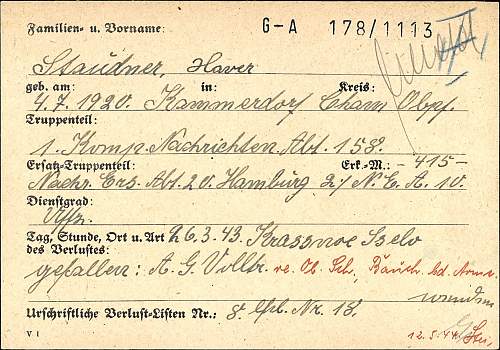 Familien- u. Vorname: G-A 178/1113
Staudner, Xaver
geb. am: in: Kreis:
4.7.1920. Kammerdorf Cham Obpf.
Truppenteil:
1. Komp. Nachrichten Abt. 158.
Ersatz-Truppenteil: Erk.-M.: -415-
Nachr. Ers. Abt. 20. Hamburg 2/ N. E. A. 10.
Dienstgrad:
Uffz.
Tag, Stunde, Ort u. Art 26.3.43. Krassnoe Sselo
des Verlustes:
gefallen: A. G. Volltr. re. Ob. Sch., Bauch. bd. Arme.
wunden
Urschriftliche Verlust-Listen Nr.: 8. Nr. 18.
V 1 12.5.44.